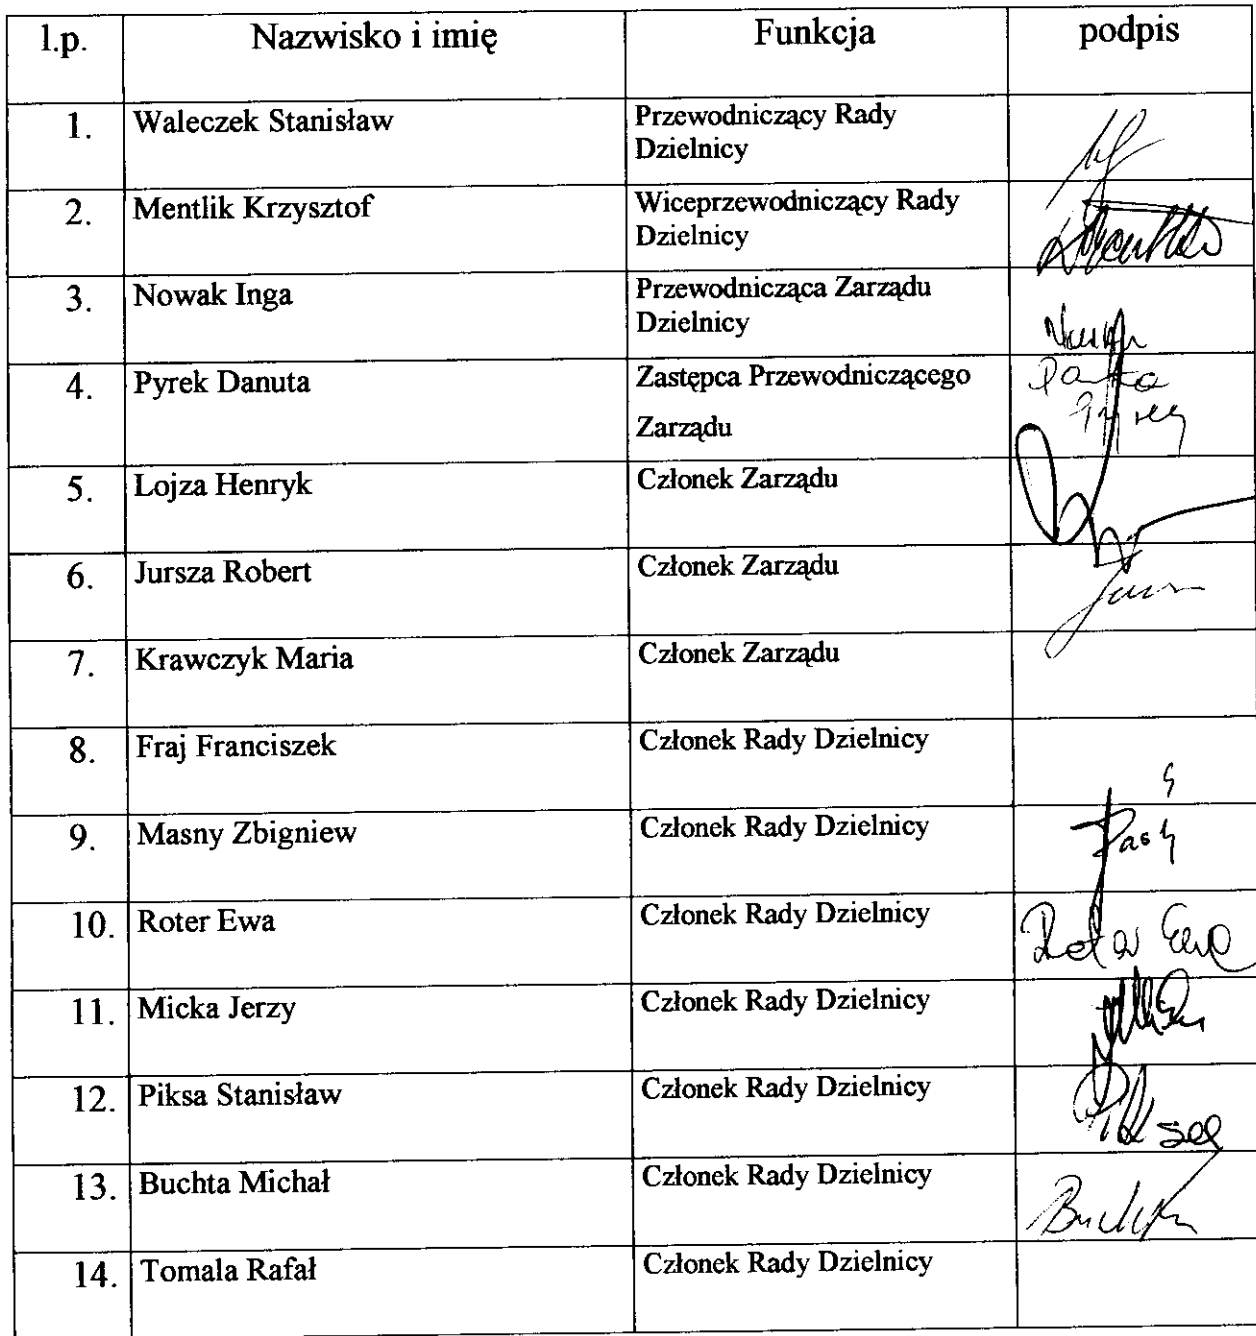 l.p. Nazwisko i imię Funkcja podpis
1. Waleczek Stanisław Przewodniczący Rady
Dzielnicy
2. Mentlik Krzysztof Wiceprzewodniczący Rady
Dzielnicy
3. Nowak Inga Przewodnicząca Zarządu
Dzielnicy
4. Pyrek Danuta Zastępca Przewodniczącego
Zarządu
5. Lojza Henryk Członek Zarządu
6. Jursza Robert Członek Zarządu
7. Krawczyk Maria Członek Zarządu
8. Fraj Franciszek Członek Rady Dzielnicy
9. Masny Zbigniew Członek Rady Dzielnicy
10. Roter Ewa Członek Rady Dzielnicy Roter Ewa
11. Micka Jerzy Członek Rady Dzielnicy
12. Piksa Stanisław Członek Rady Dzielnicy
13. Buchta Michał Członek Rady Dzielnicy
14. Tomala Rafał Członek Rady Dzielnicy